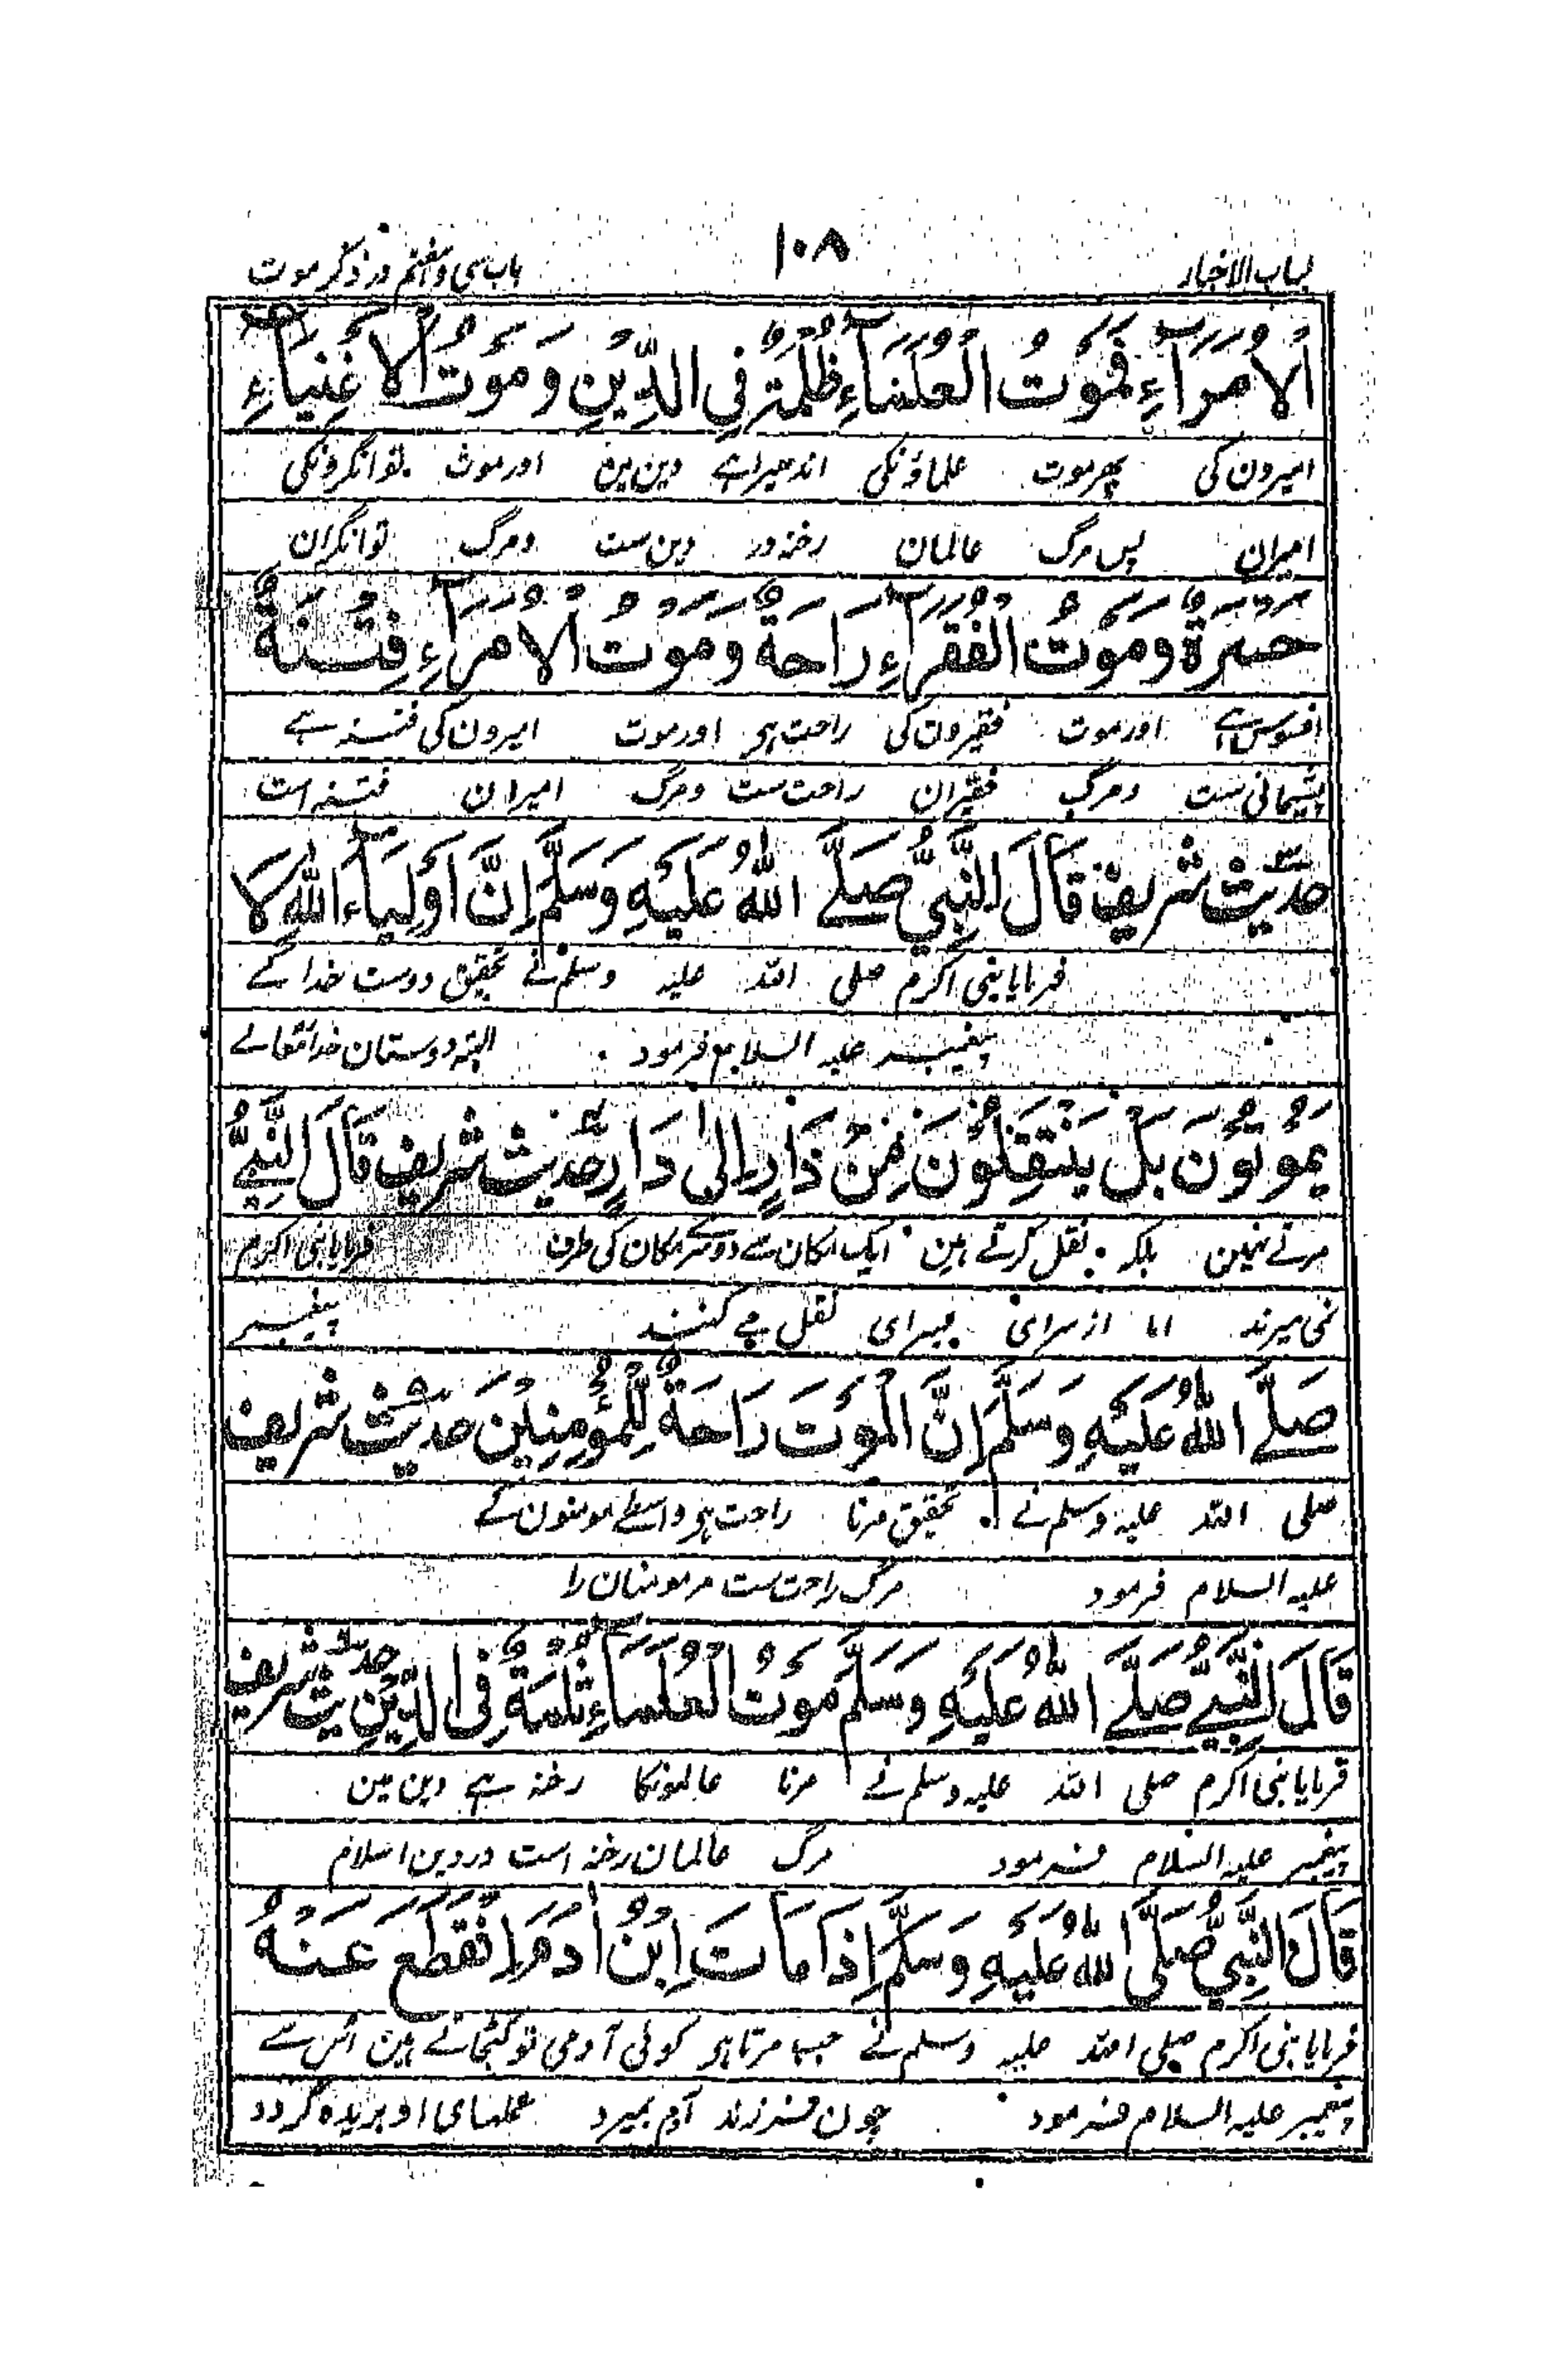 لباب الاخبار ۱۰۸ باب سی و هفتم در ذکر موت
اَلْاُمَرَآءِ فَمَوْتُ الْعُلَمَآءِ ظُلْمَةٌ فِی الدِّیْنِ وَ مَوْتُ الْاَغْنِیَآءِ
امیرون کی پھر موت علماؤنکی اندھیرا ہے دین مین اور موت توانگرونکی
امیران پس مرگ عالمان رخنہ در دین ست ومرگ توانگران
حَسْرَةٌ وَمَوْتُ الْفُقَرَآءِ رَاحَةٌ وَمَوْتُ الْاُمَرَآءِ فِتْنَةٌ
افسوس ہے اور موت فقیرون کی راحت ہی اور موت امیرون کی فتنہ ہے
پشیمانی ست ومرگ فقیران راحت ست ومرگ امیران فتنہ است
حدیث شریف قَالَ النَّبِیُّ صَلَّے اللهُ عَلَیْهِ وَسَلَّمَ اِنَّ اَوْلِیَآءَ اللهِ لَا
فرمایا نبی اکرم صلی اللہ علیہ وسلم نے تحقیق دوست خدا کے
پیغمبر علیہ السلام فرمود البتہ دوستان خدا تعالے
یَمُوْتُوْنَ بَلْ یَنْتَقِلُوْنَ مِنْ دَارٍ اِلٰی دَارٍ حدیث شریف قَالَ النَّبِیُّ
مرتے نہین بلکہ نقل کرتے ہین ایک مکان سے دوسرے مکان کی طرف فرمایا نبی اکرم
نمی میرند اما از سرای بسرای نقل مے کنند پیغمبر
صَلَّے اللهُ عَلَیْهِ وَسَلَّمَ اِنَّ الْمَوْتَ رَاحَةٌ لِّلْمُؤْمِنِیْنَ حدیث شریف
صلی اللہ علیہ وسلم نے تحقیق مرنا راحت ہی واسطے مومنون کے
علیہ السلام فرمود مرگ راحت ست مر مومنان را
قَالَ النَّبِیُّ صَلَّے اللهُ عَلَیْهِ وَسَلَّمَ مَوْتُ الْعُلَمَآءِ ثُلْمَةٌ فِی الدِّیْنِ حدیث شریف
فرمایا نبی اکرم صلی اللہ علیہ وسلم نے مرنا عالمونکا رخنہ ہے دین مین
پیغمبر علیہ السلام فرمود مرگ عالمان رخنہ است در دین اسلام
قَالَ النَّبِیُّ صَلَّی اللهُ عَلَیْهِ وَسَلَّمَ اِذَا مَاتَ ابْنُ اٰدَمَ اِنْقَطَعَ عَنْهُ
فرمایا نبی اکرم صلی اللہ علیہ وسلم نے جب مرتا ہی کوئی آدمی تو کٹجاتے ہین اس سے
پیغمبر علیہ السلام فرمود چون فرزند آدم بمیرد عملہای او بریدہ گردد